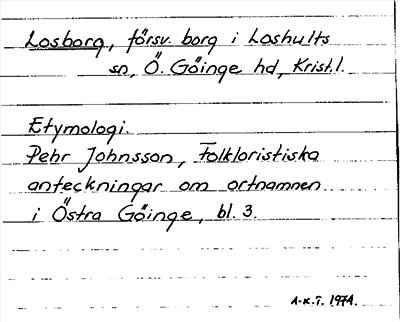 Losborg, försv. borg i Loshults
sn, Ö. Göinge hd, Krist. l.
Etymologi.
Pehr Johnsson, Folkloristiska
anteckningar om ortnamnen
i Östra Göinge, bl. 3.
A-K.T. 1974.